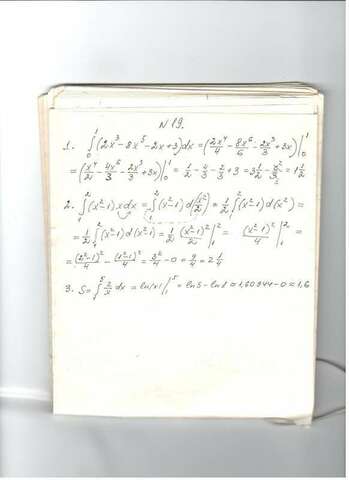 N 19.
1. ∫₀¹ (2x³ - 8x⁵ - 2x + 3)dx = (2x⁴/4 - 8x⁶/6 - 2x³/3 + 3x) |₀¹
= (x⁴/2 - 4x⁶/3 - 2x³/3 + 3x) |₀¹ = 1/2 - 4/3 - 2/3 + 3 = 3 1/2 - 2 = 1 1/2
2. ∫₁² (x² - 1) · x dx = ∫₁² (x² - 1) d(x²/2) = 1/2 ∫₁² (x² - 1) d(x²) =
= 1/2 ∫₁² (x² - 1) d(x² - 1) = 1/2 (x² - 1)²/2 |₁² = (x² - 1)²/4 |₁² =
= (2² - 1)²/4 - (1² - 1)²/4 = 3²/4 - 0 = 9/4 = 2 1/4
3. S = ∫₁⁵ dx = ln|x| |₁⁵ = ln5 - ln1 ≈ 1,60944 - 0 ≈ 1,6